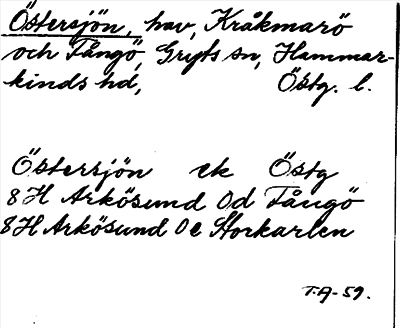 Östersjön, hav, Kråkmarö
och Fångö, Gryts sn, Hammar-
kinds hd, Östg. l.
Östersjön ek Östg
8H Arkösund 0d Fångö
8H Arkösund 0e Storkarlen
T.A-59.